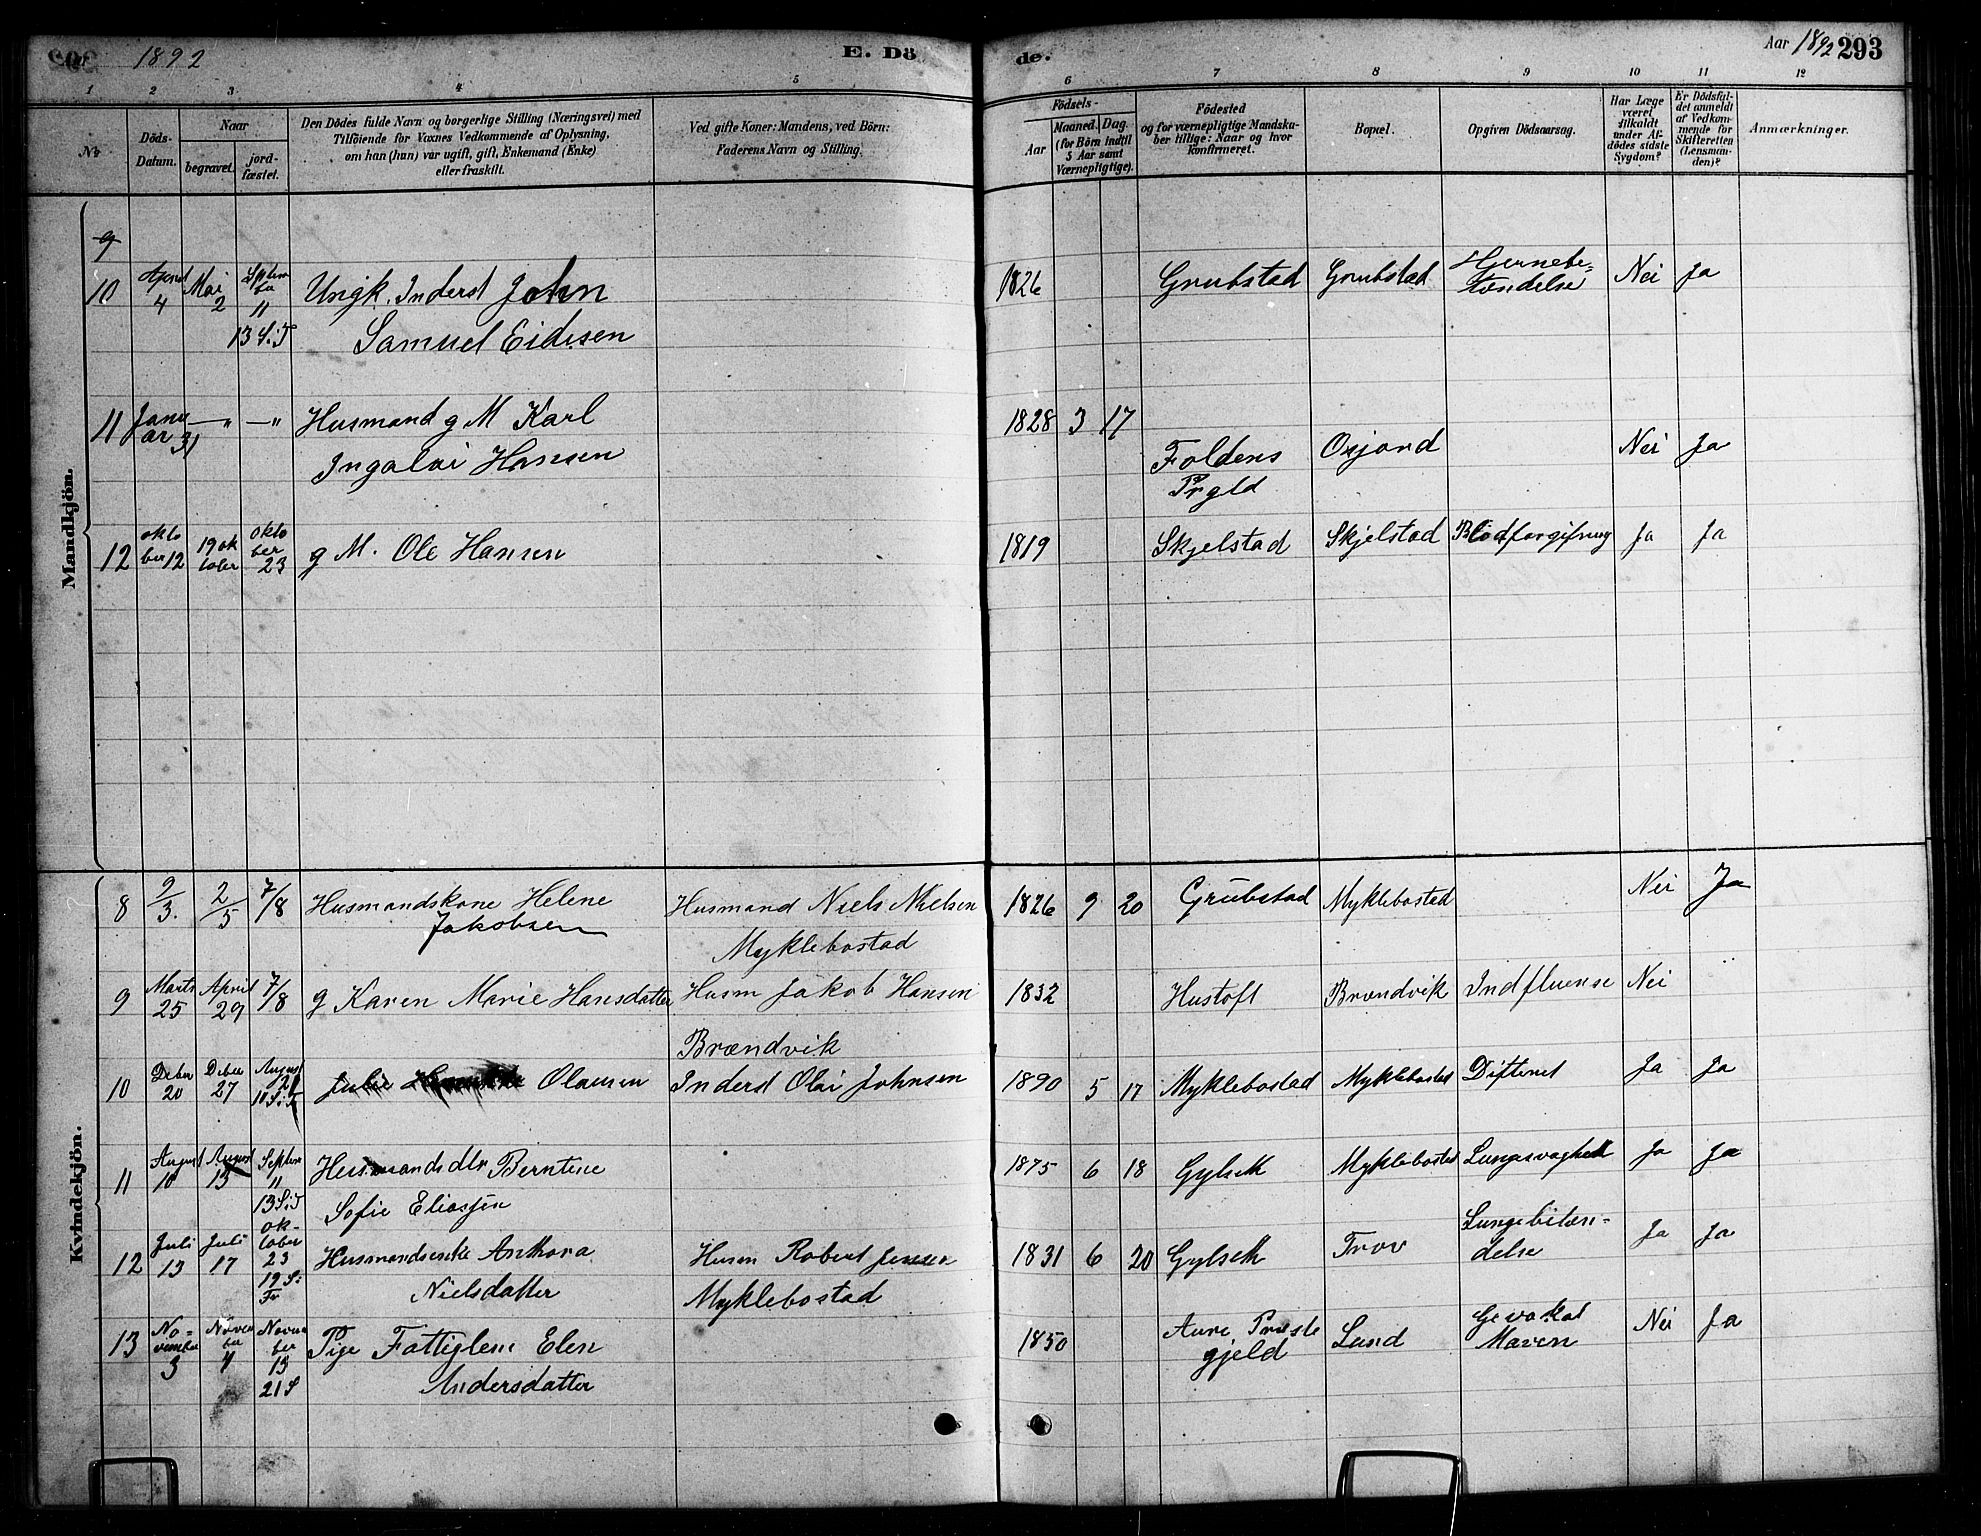 1892
E. Dö
de.
Aar 1892 293
1 2 3 4 5 6 7 8 9 10 11 12
No
Döds-Datum.
Naar
begravet.
jord-fæstet.
Den Dödes fulde Navn og borgerlige Stilling (Næringsvei) med
Tilföiende for Voxnes Vedkommende af Oplysning,
om han (hun) var ugift, gift, Enkemand (Enke)
eller fraskilt.
Ved gifte Koner: Mandens, ved Börn:
Faderens Navn og Stilling.
Födsels-
Aar
Maaned. Dag.
(for Börn indtil
5 Aar samt
Værnepligtige).
Födested
og for værnepligtige Mandska-
ber tillige: Naar og hvor
konfirmeret.
Bopæl.
Opgiven Dödsaarsag.
Har Læge
været
tilkaldt
under Af-
dödes sidste
Sygdom?
Er Dödsfal-
det anmeldt
af Vedkom-
mende for
Skifteretten
(Lensman-
den)?
Anmærkninger.
Mandkjön.
9
10 April 4 Mai 2 Septem ber 11 Ungk. Inderst John 1826 Grubstad Grubstad Hjernebe= tændelse Nei Ja
13 S.i.T Samuel Eidisen
11 Janu ar 31 — " — " Husmand g M Karl 1828 3 17 Foldens Prgld Osjord Nei Ja
Ingolai Hansen
12 okto ber 12 19 ok tober okto ber 23 g M. Ole Hansen 1819 Skjelstad Skjelstad Blodforgifning Ja Ja
Kvindekjön.
8 9/3. 2/5 7/8 Husmandskone Helene Husmand Niels Nielsen 1826 9 20 Grubstad Myklebostad Nei Ja
Jakobsen Myklebostad
9 Marts 25 April 29 7/8 g Karen Marie Hansdatter Husm Jakob Hansen 1832 Hustoft Brændvik Indfluense Nei "
Brændvik
10 Deber 20 Deber 27 August 21 Julie Olausen Inderst Olai Johnsen 1890 5 17 Myklebostad Myklebostad Difterit Ja Ja
11 August 10 August 13 Septem 11 Husmandsdtr Berntine 1875 6 18 Gylset Myklebostad Lungesvaghed Ja Ja
13 S.i.T Sofie Eliassen
12 Juli 13 Juli 17 ok- tober 23 Husmandsenke Anthona Husm Robert Jensen 1831 6 20 Gylset Trov Lungebetæn- delse Ja Ja
19 S.i Tr Nielsdatter Myklebostad
13 No- vember 3 Novem ber 7 Novem ber 13 Pige Fattiglem Elen 1850 Aure Præste gjeld Lund Maven Nei Ja
21 S Andersdatter